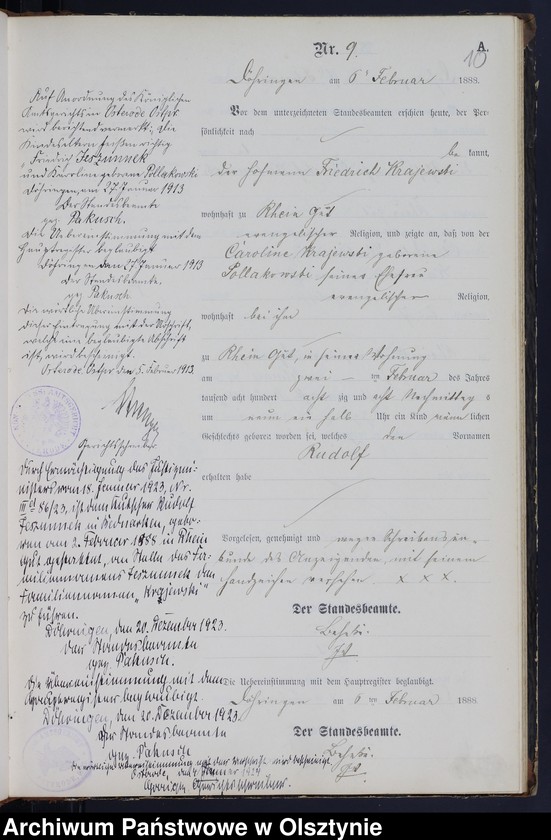 Nr. 9.
A.
10
Döhringen am 6ᵗ Februar 1888.
Vor dem unterzeichneten Standesbeamten erschien heute, der Per-
sönlichkeit nach
be kannt,
der Hofmann Friedrich Krajewski
wohnhaft zu Rhein Gut
evangelischer Religion, und zeigte an, daß von der
Caroline Krajewski geborene
Pollakowski seiner Ehefrau
evangelischer Religion,
wohnhaft bei ihm
zu Rhein Gut, in seiner Wohnung
am zwei ten Februar des Jahres
tausend acht hundert acht zig und acht Nachmittags
um neun ein halb Uhr ein Kind männ lichen
Geschlechts geboren worden sei, welches den Vornamen
Rudolf
erhalten habe
Vorgelesen, genehmigt und wegen Schreibensun-
kunde des Anzeigenden mit seinem
Handzeichen versehen x x x.
Der Standesbeamte.
Die Uebereinstimmung mit dem Hauptregister beglaubigt.
Döhringen am 6 ten Februar 1888
Der Standesbeamte.
Auf Anordnung des Königlichen
Amtsgerichts in Osterode Ostpr
wird berichtend vermerkt: Die
Kindeseltern heißen richtig
"Friedrich Jeszunnek
und Karoline geborene Pollakowski
Döhringen, am 27 Januar 1913
Der Standesbeamte
gez. Pakusch.
Die Uebereinstimmung mit dem
Hauptregister beglaubigt
Döhringen am 27 Januar 1913
Der Standesbeamte.
gez. Pakusch
Die wörtliche Uebereinstimmung
dieser Eintragung mit der Abschrift,
welche eine beglaubigte Abschrift
ist, wird bescheinigt.
Osterode Ostpr den 5. Februar 1913.
Gerichtsschreiber
Durch Ermächtigung des Justizmi-
nisters vom 18. Januar 1923, Nr.
III d 86/23, ist dem Kutscher Rudolf
Jeszunnek in, gebo-
ren am 2. Februar 1888 in Rhein
Gut, gestattet, an Stelle des Fa-
miliennamens Jeszunnek den
Familiennamen "Krajewski"
zu führen.
Döhringen, den 20. Dezember 1923.
Der Standesbeamte
gez. Pakusch.
Die Uebereinstimmung mit dem
Hauptregister beglaubigt.
Döhringen, den 20. Dezember 1923.
Der Standesbeamte
gez. Pakusch
Die wörtliche Uebereinstimmung mit der Urschrift wird bescheinigt.
Osterode, den Januar 1924
Archiwum Państwowe w Olsztynie